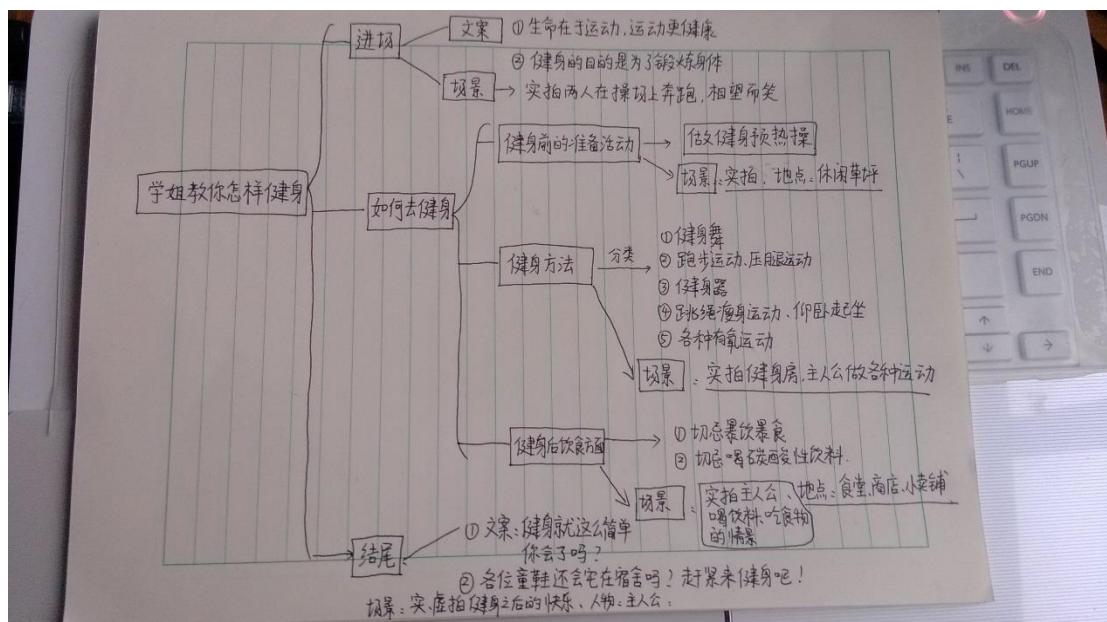 进场
文案
① 生命在于运动,运动更健康
② 健身的目的是为了锻炼身体
场景
实拍两人在操场上奔跑,相望而笑
学姐教你怎样健身
如何去健身
健身前的准备活动
做健身预热操
场景:实拍、地点:休闲草坪
健身方法
分类
① 健身舞
② 跑步运动、压腿运动
③ 健身器
④ 跳绳瘦身运动、仰卧起坐
⑤ 各种有氧运动
场景:实拍健身房,主人公做各种运动
健身后饮食方面
① 切忌暴饮暴食
② 切忌喝碳酸性饮料.
场景:
实拍主人公、
喝饮料、吃食物
的情景
地点:食堂、商店、小卖铺
结尾
① 文案:健身就这么简单
你会了吗?
② 各位童鞋还会宅在宿舍吗?赶紧来健身吧!
场景:实、虚拍健身之后的快乐、人物:主人公:
INS
DEL
HOME
PGUP
PGDN
END